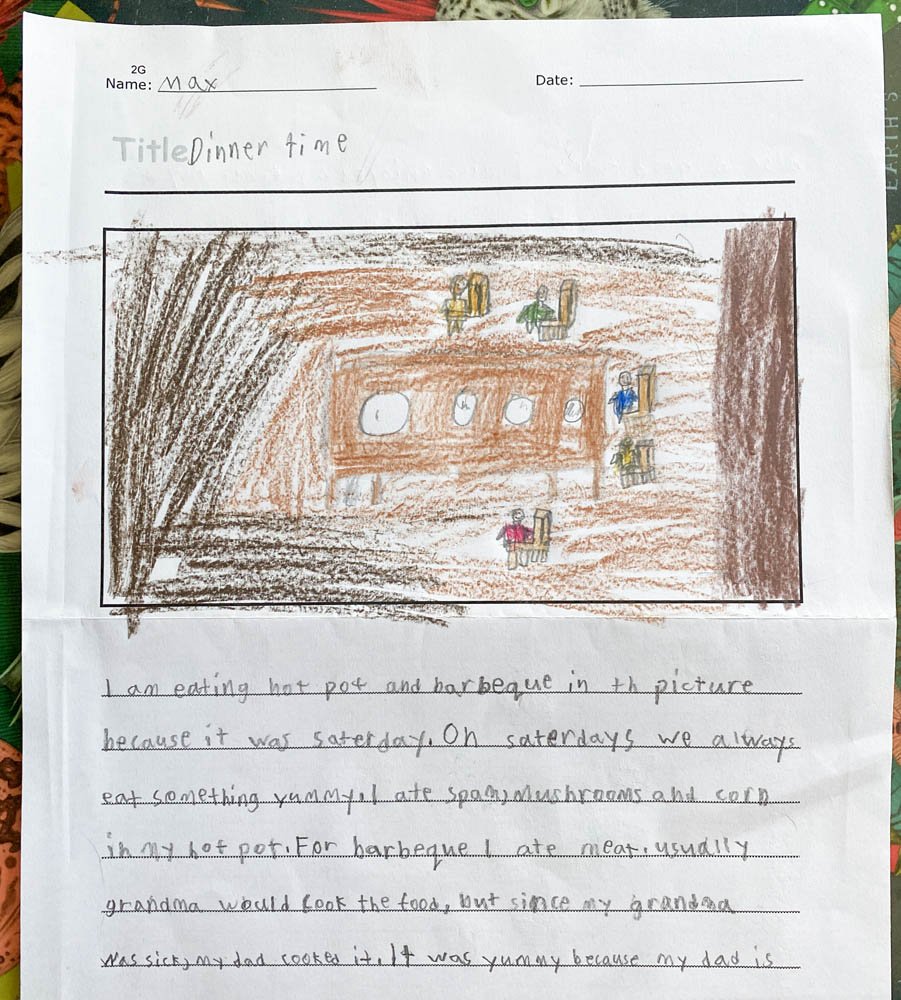 2G
Name: Max
Date:
Title Dinner time
I am eating hot pot and barbeque in th picture
because it was saterday. On saterdays we always
eat something yummy. I ate spam, mushrooms and corn
in my hot pot. For barbeque I ate meat. usually
grandma would cook the food, but since my grandma
was sick, my dad cooked it. It was yummy because my dad is
EARTH'S